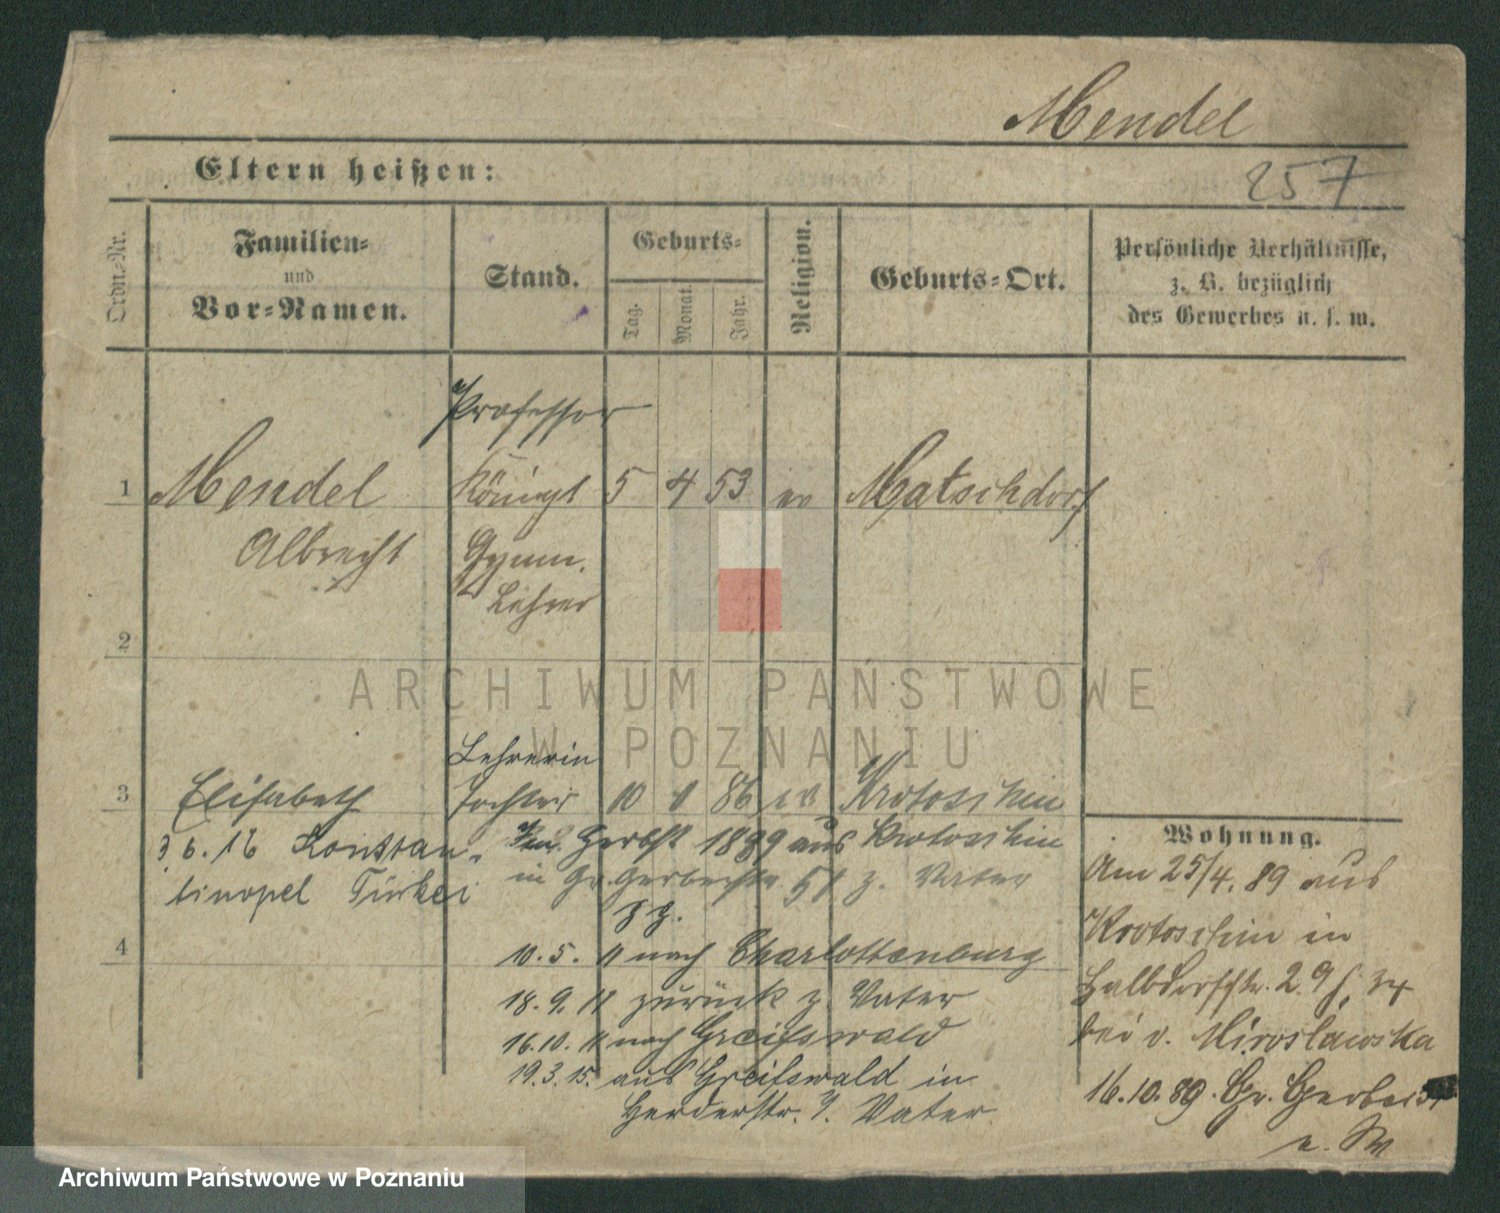 Mendel
257
Eltern heißen:
Ordn.-Nr.
Familien-
und
Vor-Namen.
Stand.
Geburts-
Tag.
Monat.
Jahr.
Religion.
Geburts-Ort.
Persönliche Verhältnisse,
z. B. bezüglich
des Gewerbes u. s. w.
Professor
1 Mendel Königl 5 4 53 ev Matschdorf
Albrecht Gymn.
Lehrer
2
ARCHIWUM PAŃSTWOWE
W POZNANIU
Lehrerin
3 Elisabeth Tochter 10 1 86 ev Krotoschin
3 6. 16 Konstan-
tinopel Türkei
Im Herbst 1889 aus Krotoschin
in Gr. Gerberstr 51 z. Vater
4
10. 5. 11 nach Charlottenburg
18. 9. 11 zurück z. Vater
16. 10. 11 nach Greifswald
19. 3. 15. aus Greifswald in
Herderstr. 7. Vater
Wohnung.
Am 25/4. 89 aus
Krotoschin in
Halbdorfstr. 29
bei v. Miroslawska
16. 10. 89. Gr. Gerber 51
Archiwum Państwowe w Poznaniu